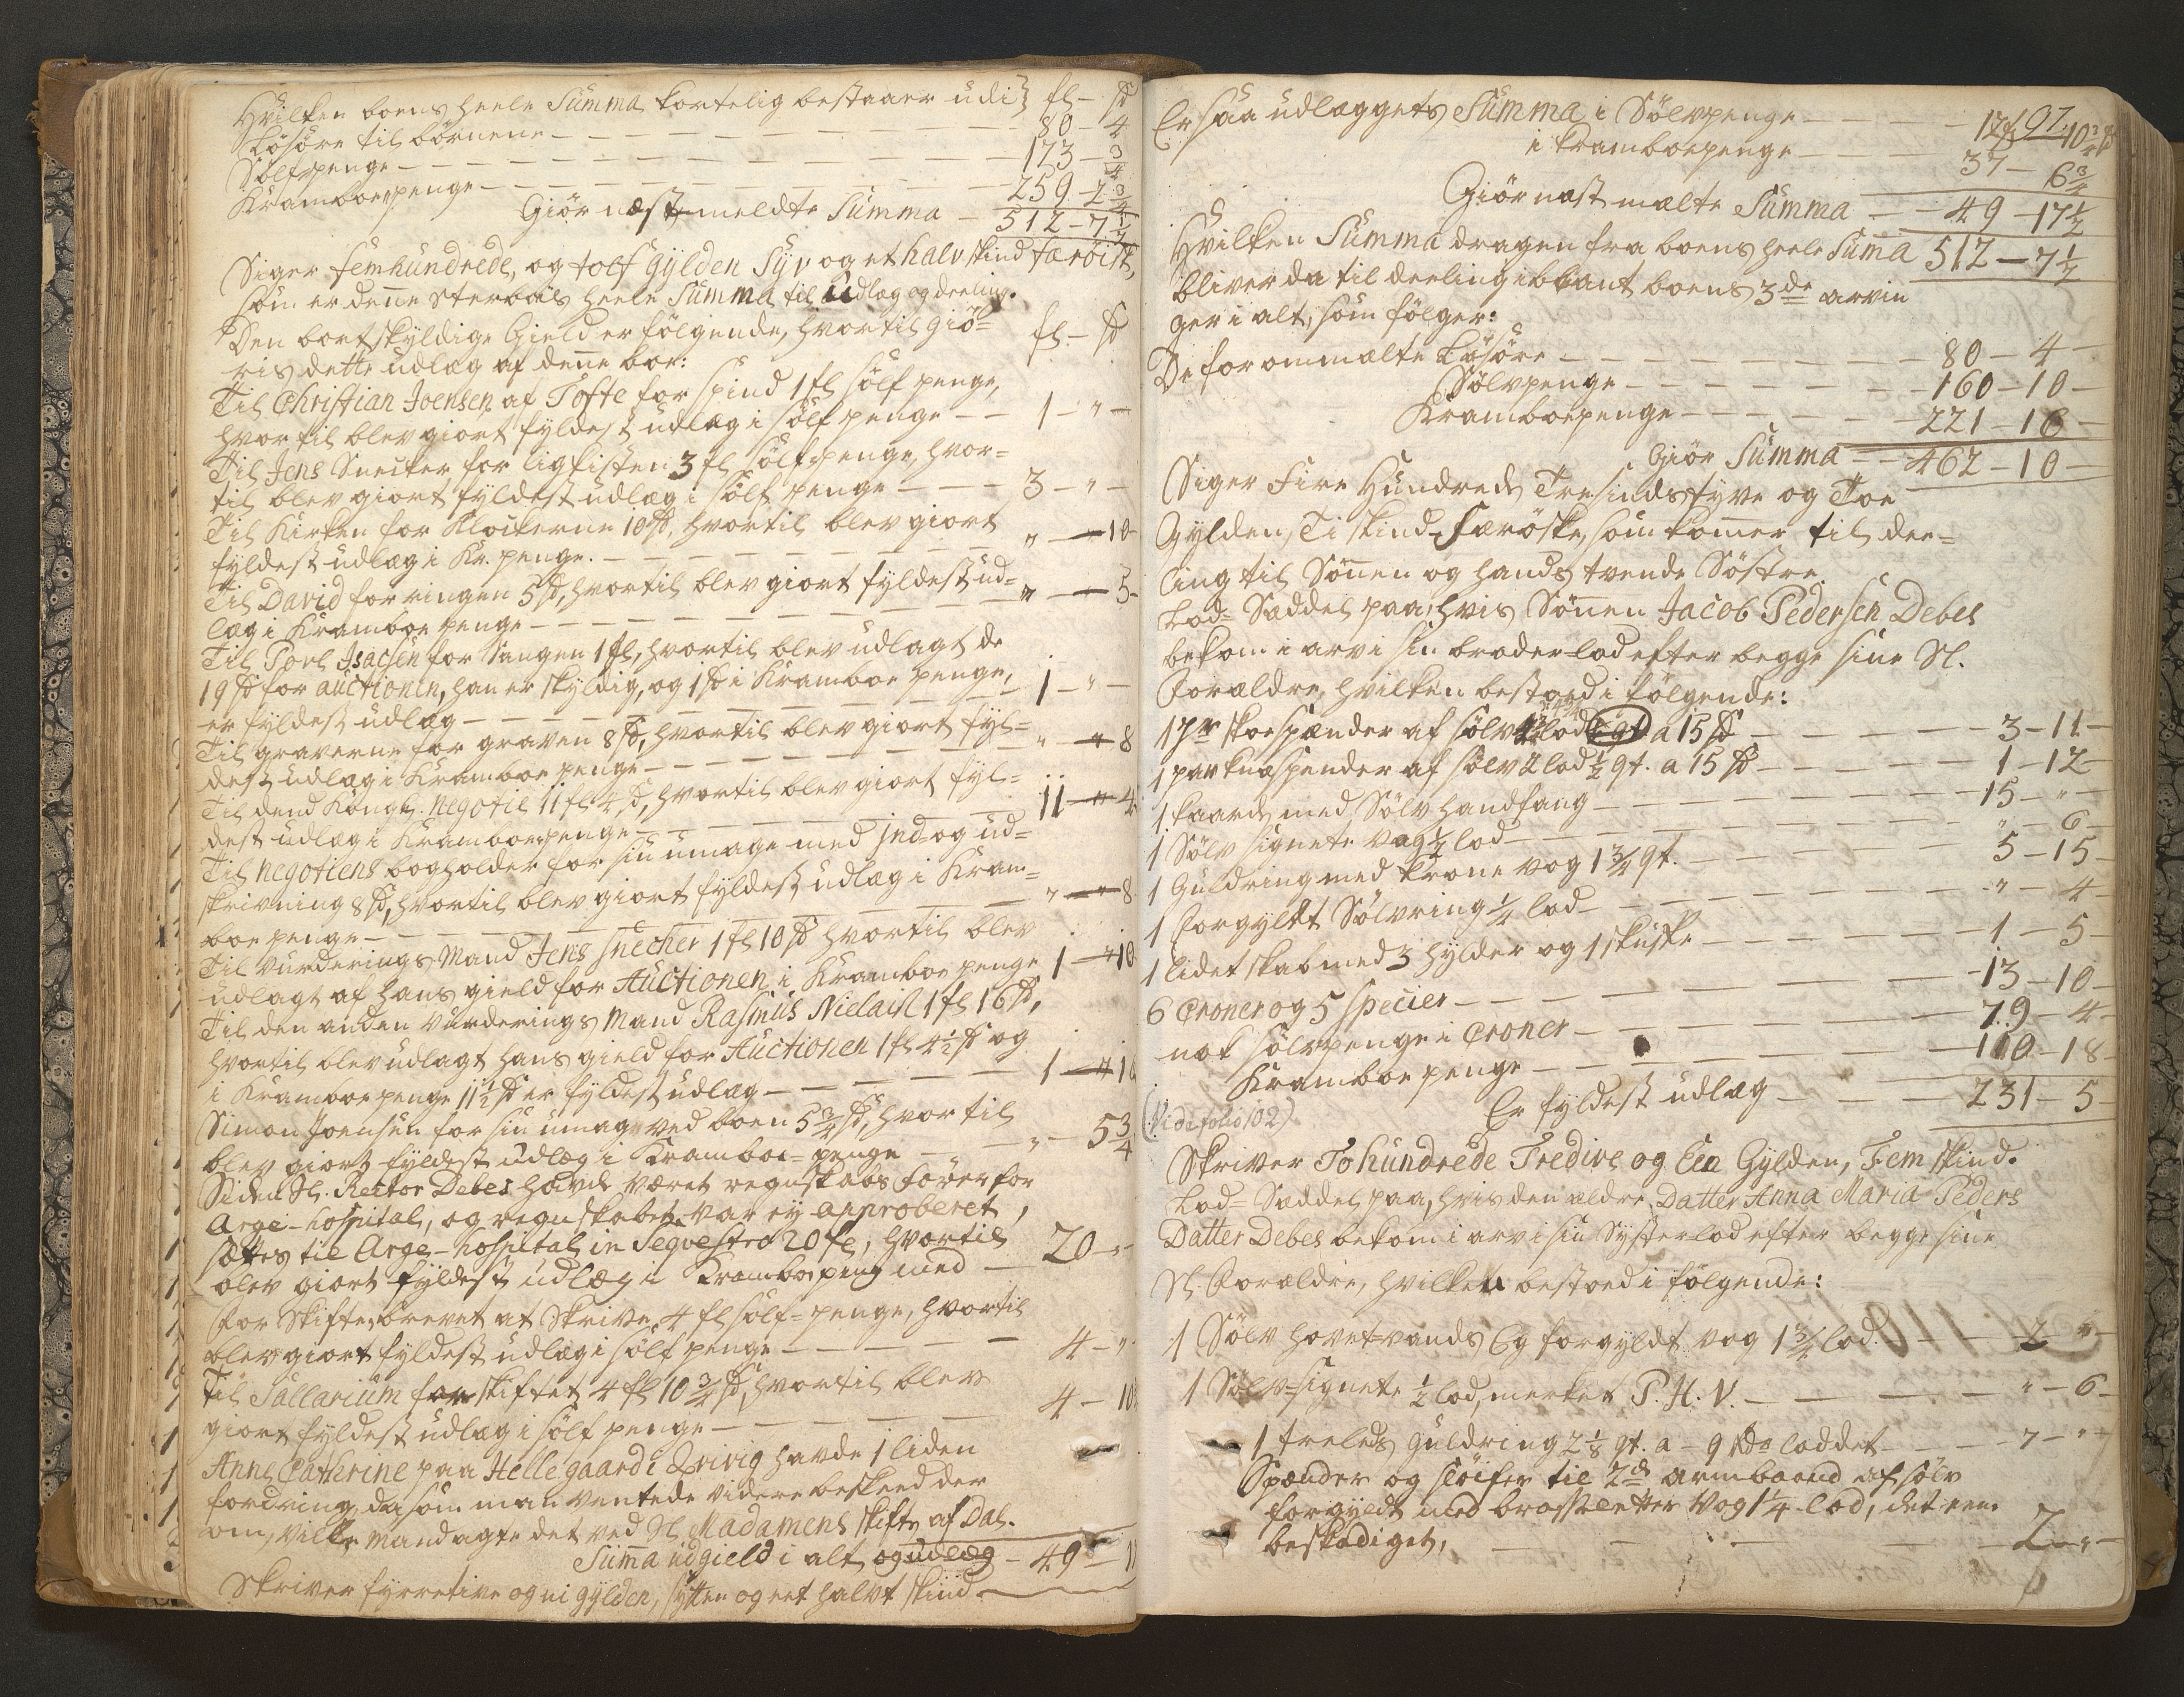 Hvilken boens heele Summa kortelig bestaaer udi fl – sk
Løsøre til børnene – 80 – 4
Sølfpenge – 173 – 3/4
Kramboepenge – 259 – 2 3/4
Giør næstmeldte Summa – 512 – 7 1/2
Siger femhundrede, og tolf Gylden Syv og et halv skind færøisk,
som er denne Sterboes heele Summa til Udlæg og deeling.
Den bortskyldige Gield er følgende, hvortil giø= fl – sk
ris dette udlæg af denne boe:
Til Christian Joensen af Tofte for Spind 1 fl sølf penge,
hvortil blev giort fyldest udlæg i sølf penge – 1 – " –
Til Jens Snecker for ligkisten 3 fl sølfpenge, hvor=
til blev giort fyldest udlæg i sølf penge – 3 – " –
Til Kirken for Klockerne 10 sk, hvortil blev giort
fyldest udlæg i Kr. penge. – " – 10
Til David for ringen 5 sk, hvortil blev giort fyldest ud=
læg i Kramboe penge – " – 5
Til Povl Isacsen for Sangen 1 fl, hvortil blev udlagt de
19 sk for auctionen, han er skyldig, og 1 sk i Kramboe penge,
er fyldest udlæg – 1 – " –
Til graverne for graven 8 sk, hvortil blev giort fyl=
dest udlæg i Kramboe penge – " – 8
Til dend Kongl. Negotie 11 fl 4 sk, hvortil blev giort fyl=
dest udlæg i Kramboepenge – 11 – 4
Til Negotiens bogholder for sin umage med Ind= og ud=
skrivning 8 sk, hvortil blev giort fyldest udlæg i Kram=
boe penge – " – 8
Til Vurderings Mand Jens Snecher 1 fl 10 sk hvortil blev
udlagt af hans gield for Auctionen i Kramboe penge 1 – 10
Til den anden Vurderings Mand Rasmus Nielsen 1 fl 16 sk,
hvortil blev udlagt hans gield for Auctionen 1 fl 4 1/2 sk og
i Kramboe penge 11 1/2 sk er fyldest udlæg – 1 – 16
Simon Joensen for sin umage ved boen 5 3/4 sk, hvortil
blev giort fyldest udlæg i Kramboe=penge – " – 5 3/4
Siden Sl. Rector Debes havde været regnskabs fører for
Arge-hospital, og regnskabet var ey approberet,
sættes til Arge-hospital in Seqvestro 20 fl, hvortil
blev giort fyldest udlæg i Kramboepeng med – 20 – "
For Skiftebrevet at Skrive 4 fl sølf=penge, hvortil
blev giort fyldest udlæg i sølf penge – 4 – "
Til Sallarium for skiftet 4 fl 10 3/4 sk, hvortil blev
giort fyldest udlæg i sølf penge – 4 – 10
Anne Catherine paa Hellegaard i Qvivig havde 1 liden
fordring, da som man ventede videre beskeed der
om, vilke mand agte det ved Sl. Madamens skifte af Dal.
Summa udgield i alt og udlæg – 49 – 1
Skriver fyrretive og ni gylden, sytten og eet halvt skind
Er saa udlæggets Summa i Sølvpenge – 12 fl 10 3/4 sk
97.
i Kramboepenge – 37 – 6 3/4
Giør næstmælte Summa – 49 – 17 1/2
Hvilken Summa dragen fra boens heele Suma 512 – 7 1/2
bliver da til deeling iblant boens 3de arvin
ger i alt, som følger:
De forommælte Løsøre – 80 – 4
Sølvpenge – 160 – 10 –
Kramboepenge – 221 – 16
Giør Summa – 462 – 10 –
Siger Fire Hundrede Tresindstyve og Toe
Gylden, Ti skind Færøske, som komer til dee=
ling til Sønen og hands tvende Søstre.
Lod=Saddel paa, hvis Sønnen Jacob Pedersen Debes
bekom i arv i sin broder-lod efter begge sine Sl.
Forældre, hvilken bestoed i følgende:
1 Pr skoespænder af sølv lod qt. a 15 sk – 3 – 11 –
1 par knæspender af sølv 2 lod 1/2 qt. a 15 sk – 1 – 12 –
1 kaarde med Sølv handfang – 15 – " –
1 Sølv signete vog 1/2 lod – " – 6
1 Guldring med krone vog 1 3/4 qt. – 5 – 15
1 Forgyldt Sølvring 1/4 lod – " – 4
1 lidet skab med 3 hylder og 1 skuffe – 1 – 5
6 Croner og 5 Specier – 13 – 10 –
nok sølvpenge i Croner – 79 – 4 –
Kramboepenge – 110 – 18 –
Er fyldest udlæg – 231 – 5 –
(Vide folio 102)
Skriver To hundrede Tredive og Een Gylden, Fem skind.
Lod=Saddel paa, hvis den ældre Datter Anna Maria Peders
Datter Debes bekom i arv i sin Systerlod efter begge sine
Sl. Forældre, hvilken bestoed i følgende:
1 Sølv hovet-vands Eg forgyldt vog 1 3/4 lod. – 2 – " –
1 Sølv=signete 1/2 lod, merket P.H.V. – " – 6 –
1 treleds Guldring 2 1/8 qt. a – 9 Rdr loddet – 7 – " –
Spænder og sløifer til 2de armbaand af sølv
forgyldt med brasseletter vog 1 1/4 lod, det eene
beskadiget, – 2 – " –